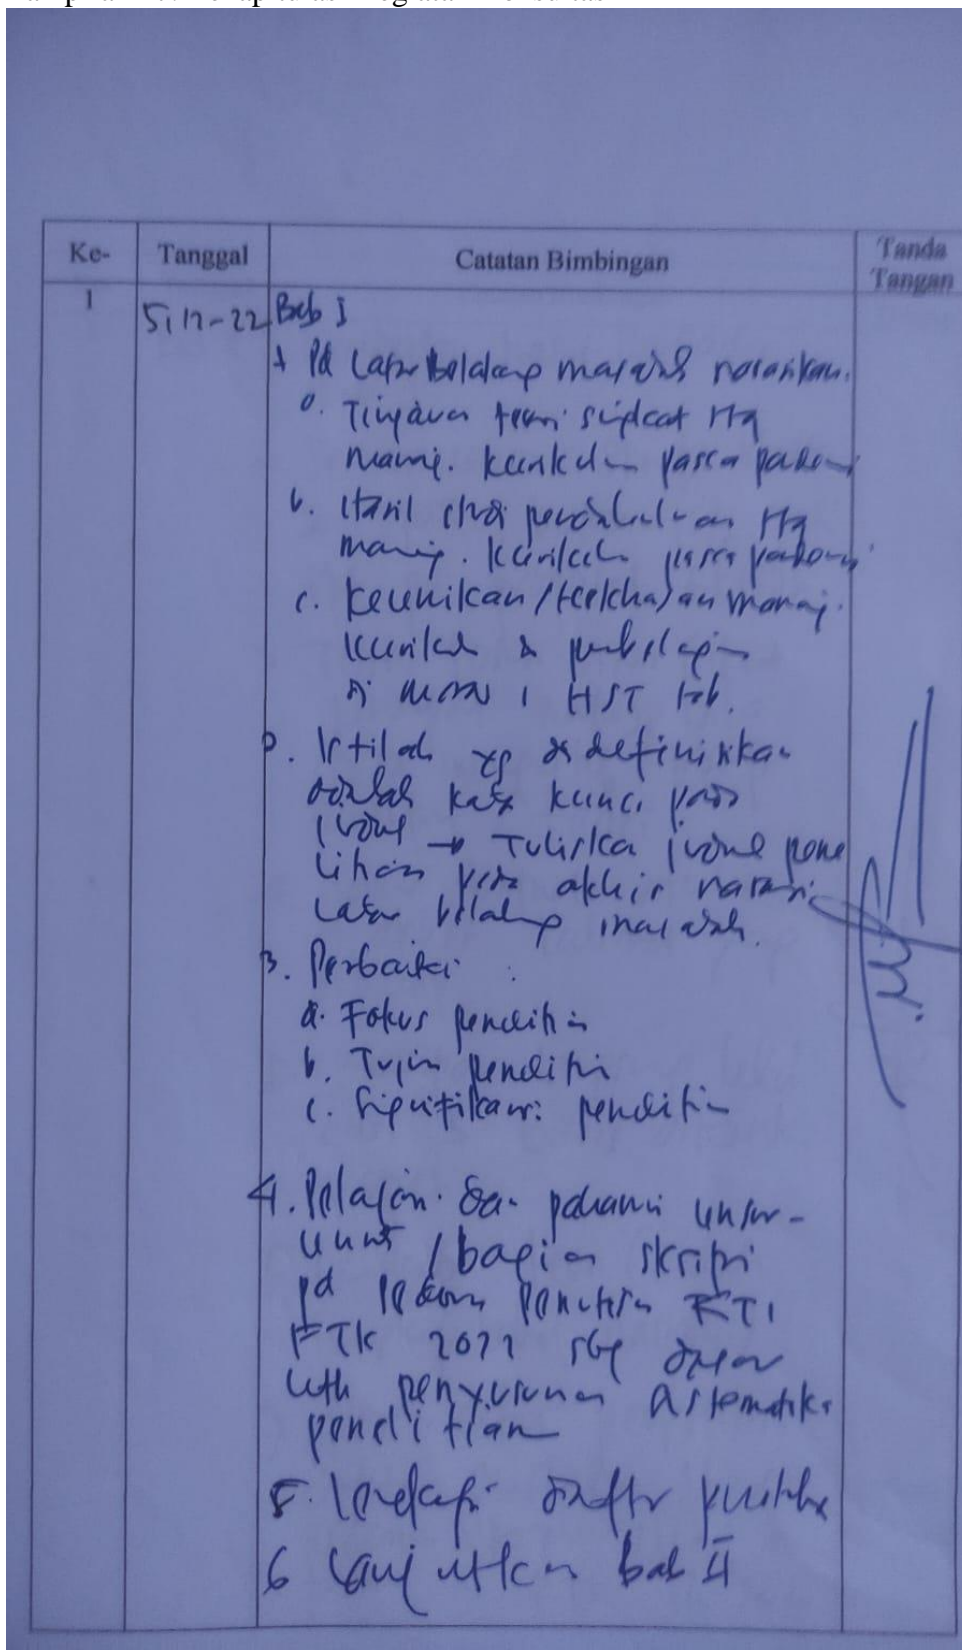 Ke- Tanggal Catatan Bimbingan Tanda Tangan
1 5/12-22 Bab I
Pd Latar Belakang masalah narasikan.
a. Tinjauan teori singkat ttg
manaj. kurikulum pasca pandemi
b. Hasil studi pendahuluan ttg
manaj. kurikulum pasca pandemi
c. Keunikan/kekhasan manaj.
kurikulum &
di 1 HST tsb.
2. Istilah yg didefinisikan
adalah kata kunci pada
judul → Tuliskan judul pene
litian pada akhir narasi
latar belakang masalah.
3. Perbaiki :
a. Fokus penelitian
b. Tujuan penelitian
c. Signifikansi penelitian
4. Pelajari dan pahami unsur-
unsur / bagian skripsi
pd Pedoman Penulisan KTI
FTK 2022 sbg dasar
utk penyusunan sistematika
penelitian
5. Lengkapi daftar pustaka
6 Lanjutkan bab II